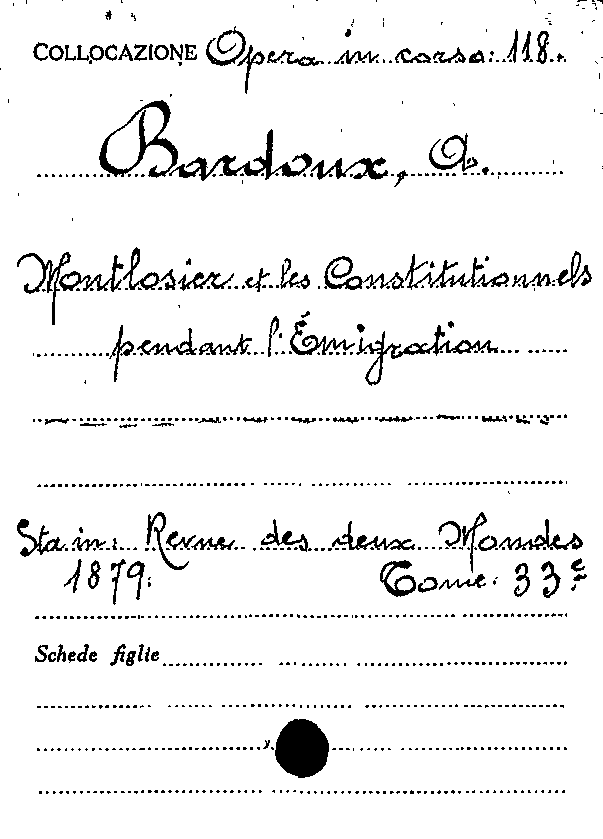 COLLOCAZIONE Opera in corso: 118.
Bardoux, A.
Montlosier et les Constitutionnels
pendant l'Émigration
Sta in: Revue des deux Mondes
1879. Tome. 33e
Schede figlie